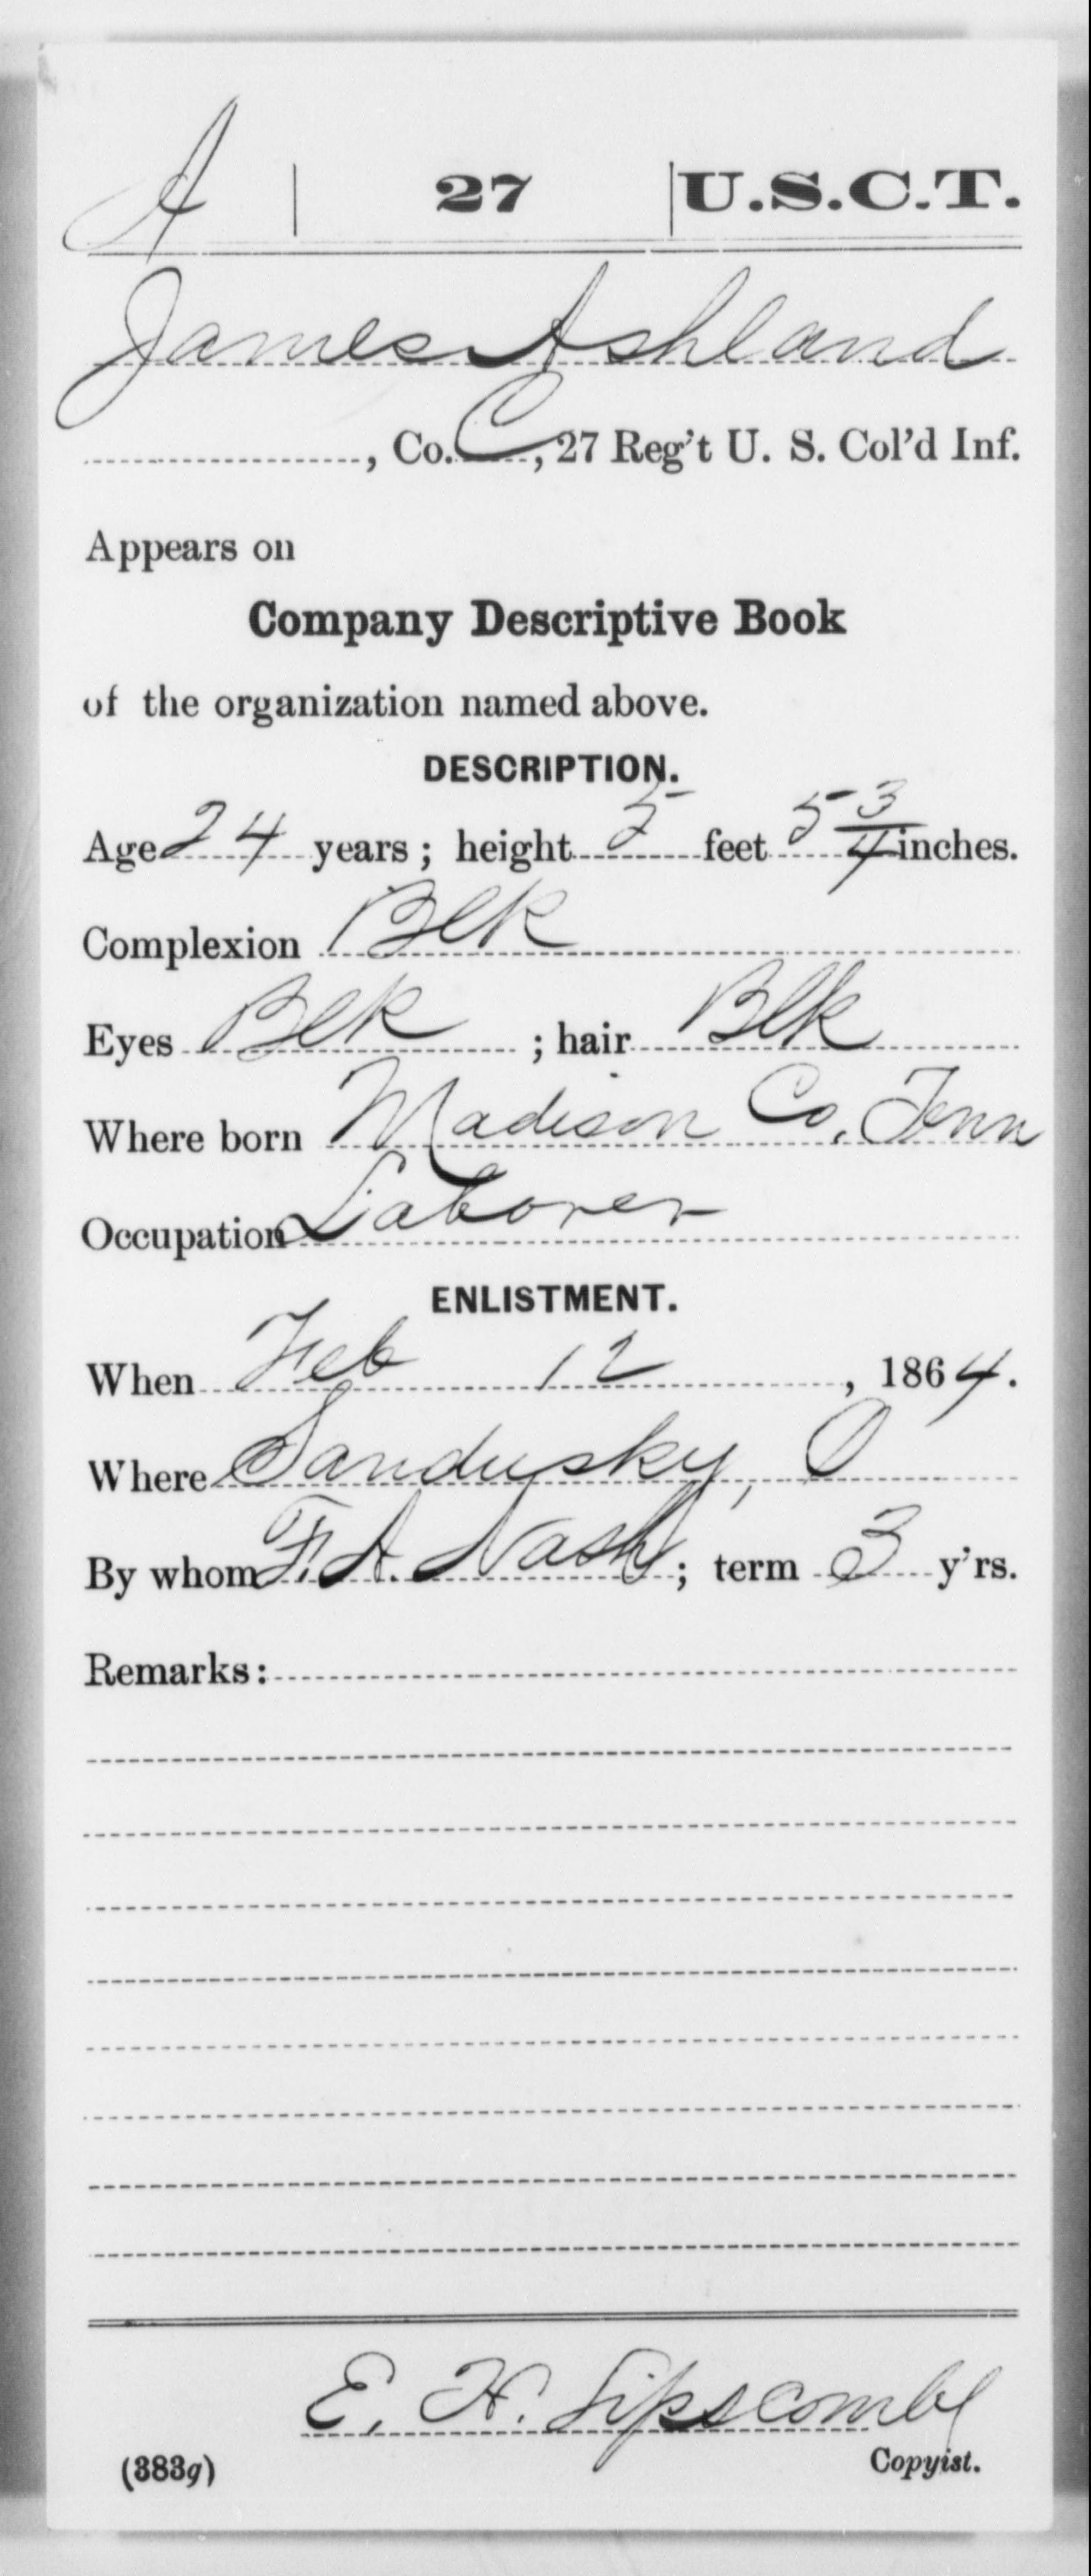 A | 27 | U.S.C.T.
James Ashland
, Co. C, 27 Reg't U. S. Col'd Inf.
Appears on
Company Descriptive Book
of the organization named above.
DESCRIPTION.
Age 24 years; height 5 feet 5 3/4 inches.
Complexion Blk
Eyes Blk ; hair Blk
Where born Madison Co, Tenn
Occupation Laborer
ENLISTMENT.
When Feb 12, 1864.
Where Sandusky, O
By whom F. A. Nash; term 3 y'rs.
Remarks:
E. H. Lipscombe
(383g) Copyist.